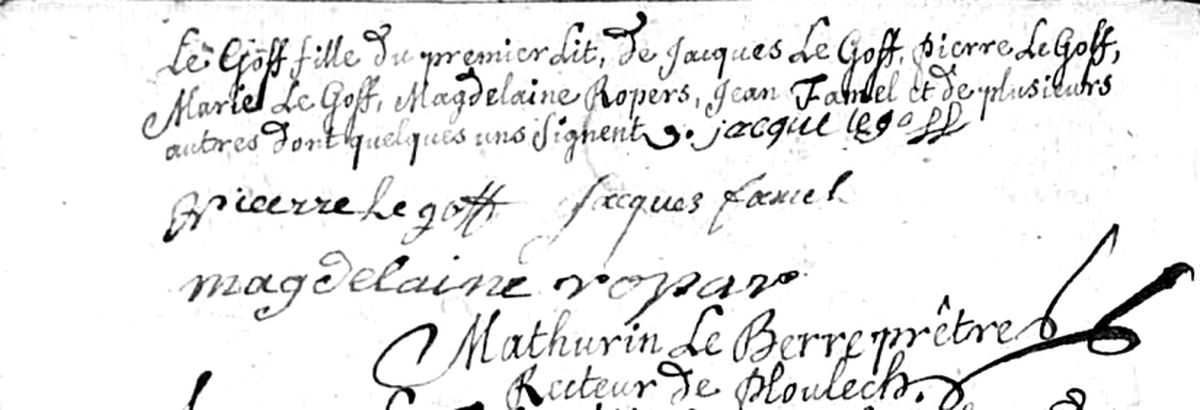 Le Goff fille du premier Lit, de Jacques Le Goff, pierre Le Goff,
Marie Le Goff, Magdelaine Ropers, Jean Famel et de plusieurs
autres dont quelques uns signent ⁊. jacque le goff
pierre le goff jacques famel
magdelaine ropar
Mathurin Le Berre prêtre
Recteur de Ploulech.